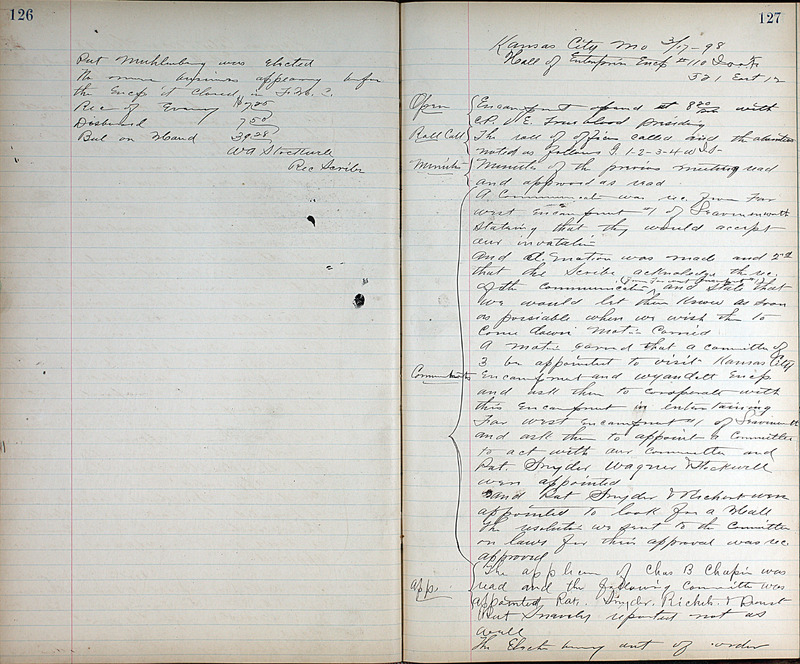 126
Pat Muhlenburg was Elected
The
business appearing before
the Encp it closed in F. H. C.
Rec of Evening $7.25
Disbursed 7 50
Bal on Hand 39.28
W A
Rec Scribe
127
Kansas City Mo 3/17-98
Hall of Enterprise Encp # 110
321 East 12
Open Encampment opened at 8 20 with
C.P. E. Trueblood presiding
Roll Call The roll of officers called and the absentees
noted as follows 1-2-3-4
Minutes Minutes of the previous meeting read
and approved as read
A Communication was rec from Far
west Encampment #1 of Leavenworth
Stating that they would accept
our invatation
and a motion was made and 2nd
that the Scribe acknoledge the rec
of the communication and State that
we would let them know as soon
as possiable when we wish them to
come down Motion Carried
A motion carried that a committee of
3 be appointed to visit Kansas City
Committee Encampment and Wyandott Encp
and ask them to cooperate with
this Encampment in entertaining
Far West Encampment #1 of Leavenworth
and ask them to appoint a Committee
to act with our Committee and
Pat Snyder Wagner & Stockwell
were appointed
and Pat Snyder & Richert were
appointed to look for a Hall
The resolution we sent to the Committee
on laws for their approval was rec
approved
Apps. The applicn of Chas B. Chapin was
read and the following Committee was
appointed Pats. Snyder, Richert &
Pat reported not as
well
The Electn being out of order